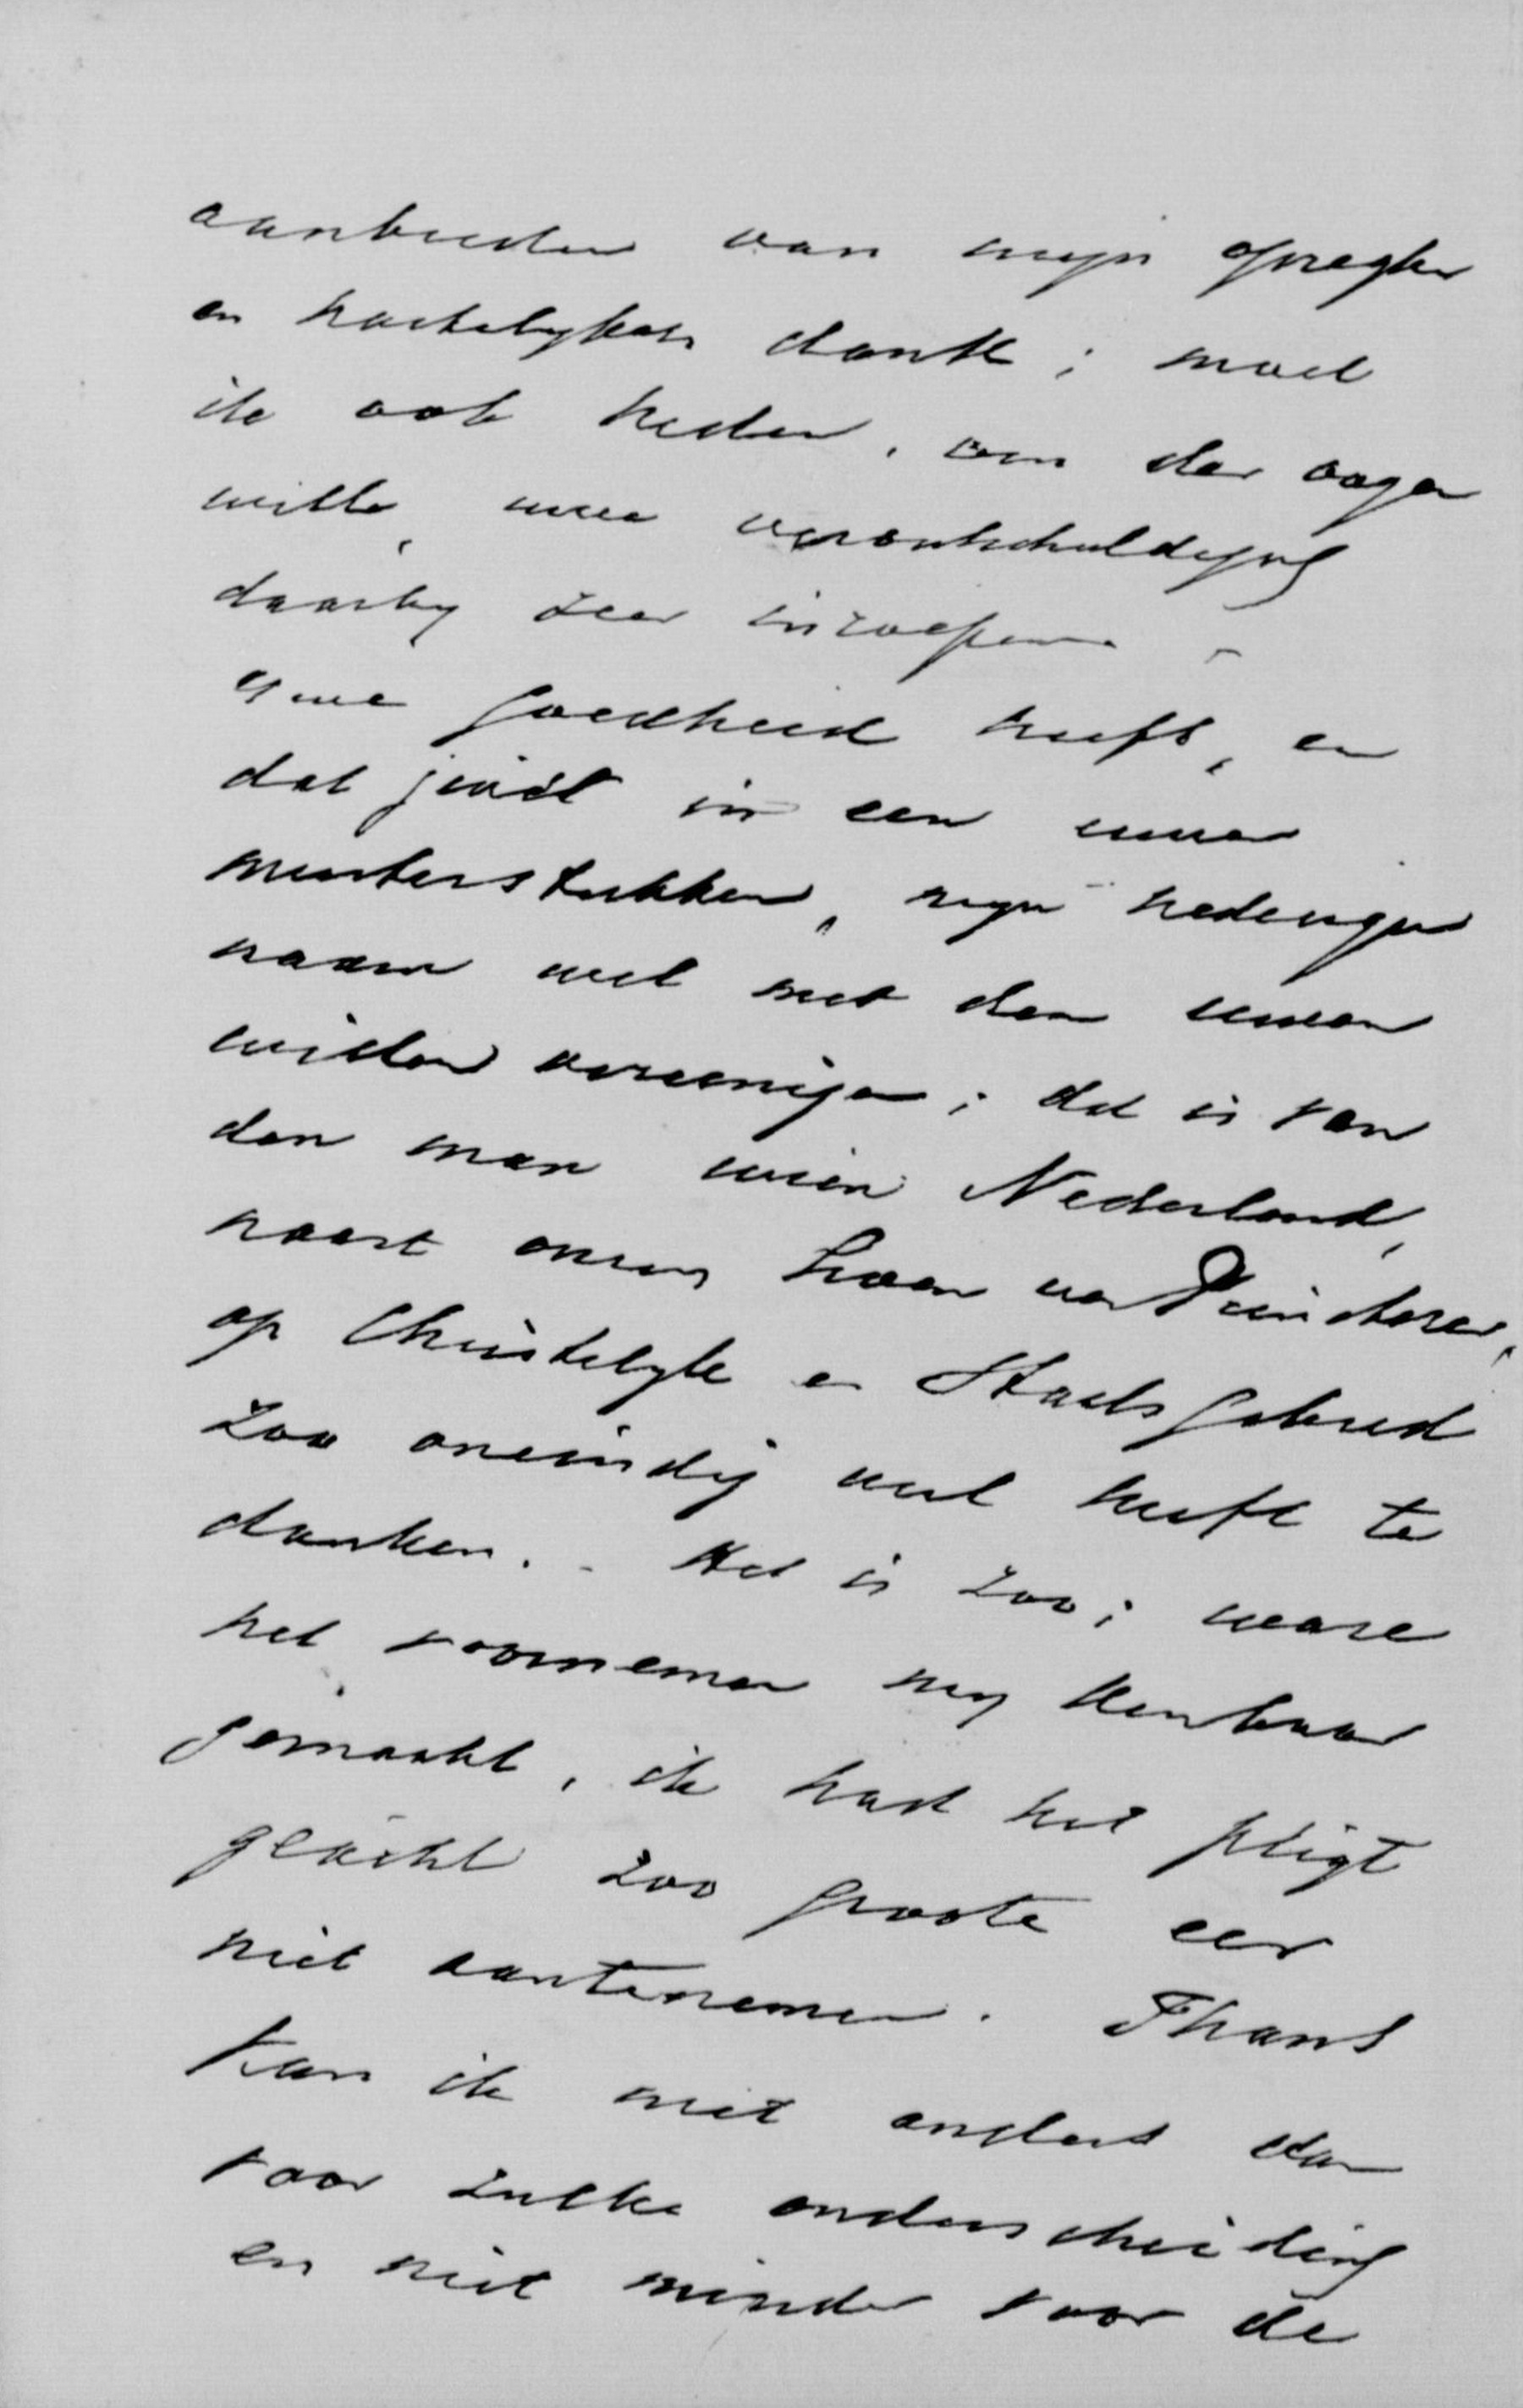 aanbieden van mijn opregten
en hartelyken dank; moet
ik ook heden, om der oogen
wille, uwe verontschuldiging
daarby zeer inroepen –
Uwe goedheid heeft, en
dat juist in een uwer
meesterstukken, myn nederigen
naam wel met den uwen
willen vereenigen; dat is van
den man wien Nederland,
naast onzen Groen van Prinsterer,
op Christelyk en Staatsgebied
zoo oneindig veel heeft te
danken. – Het is zoo; ware
het voornemen my kenbaar
gemaakt, ik had het pligt
geacht zoo groote eer
niet aantenemen. Thans
kan ik niet anders dan
voor zulke onderscheiding
en niet minder voor de